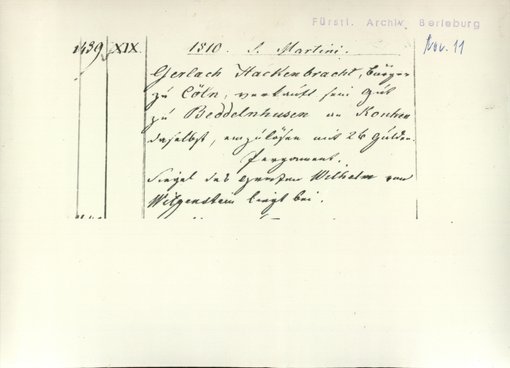 Fürstl. Archiv Berleburg
Nov. 11
1439 XIX. 1810. S. Martini.
Gerlach Hackenbracht, bürger
zu Cöln, verkauft sein Gut
zu Beddelnhusen an
daselbst, einzulösen mit 26 Gulden.
Pergament.
Siegel des Grafen Wilhelm von
Witgenstein liegt bei.